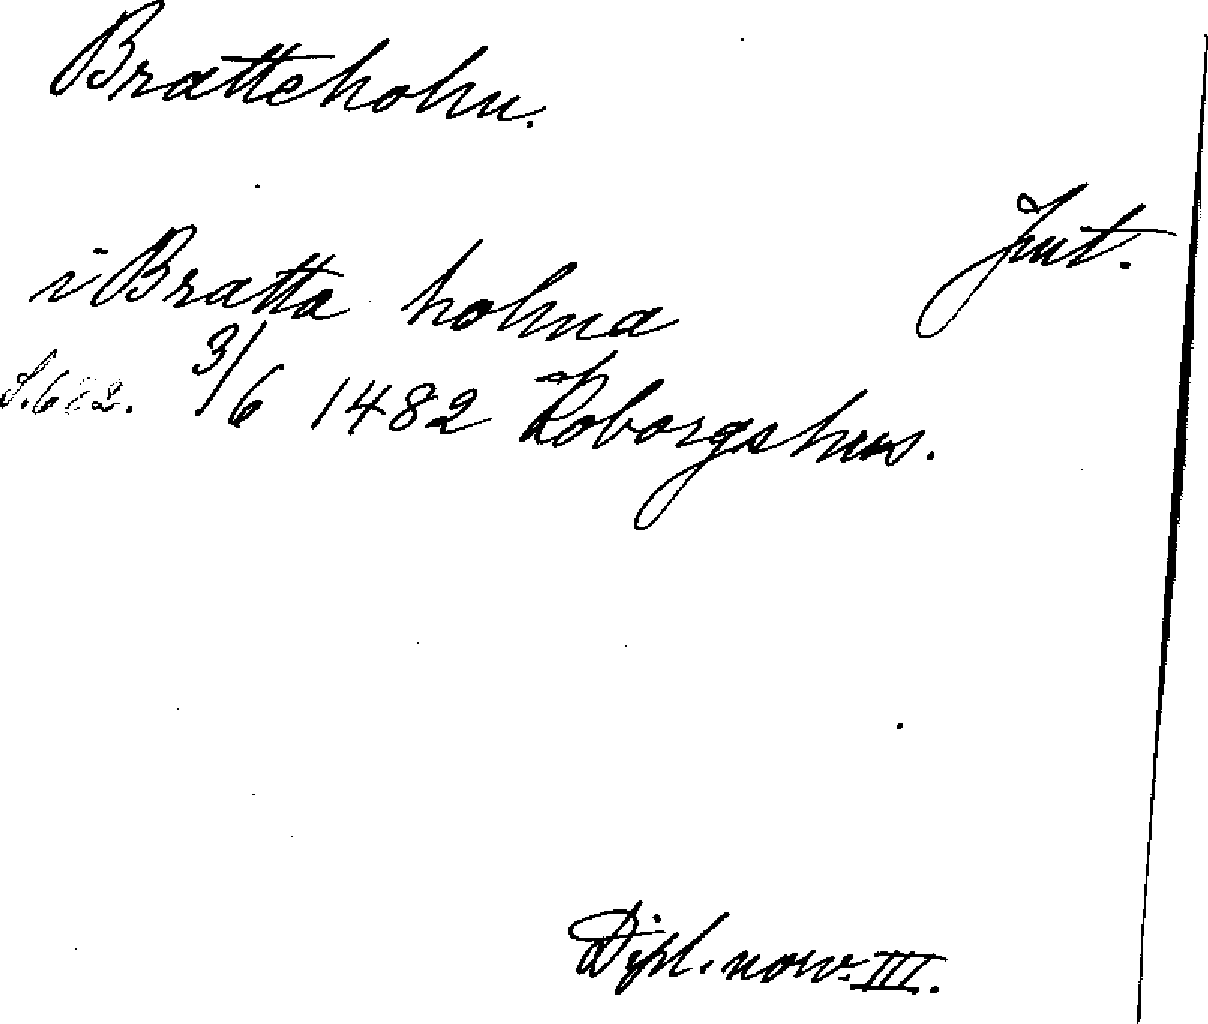 Bratteholm.
Jmt.
i Bratta holma
S. 622. 3/6 1482 Koborgshus.
Dipl. norv. III.